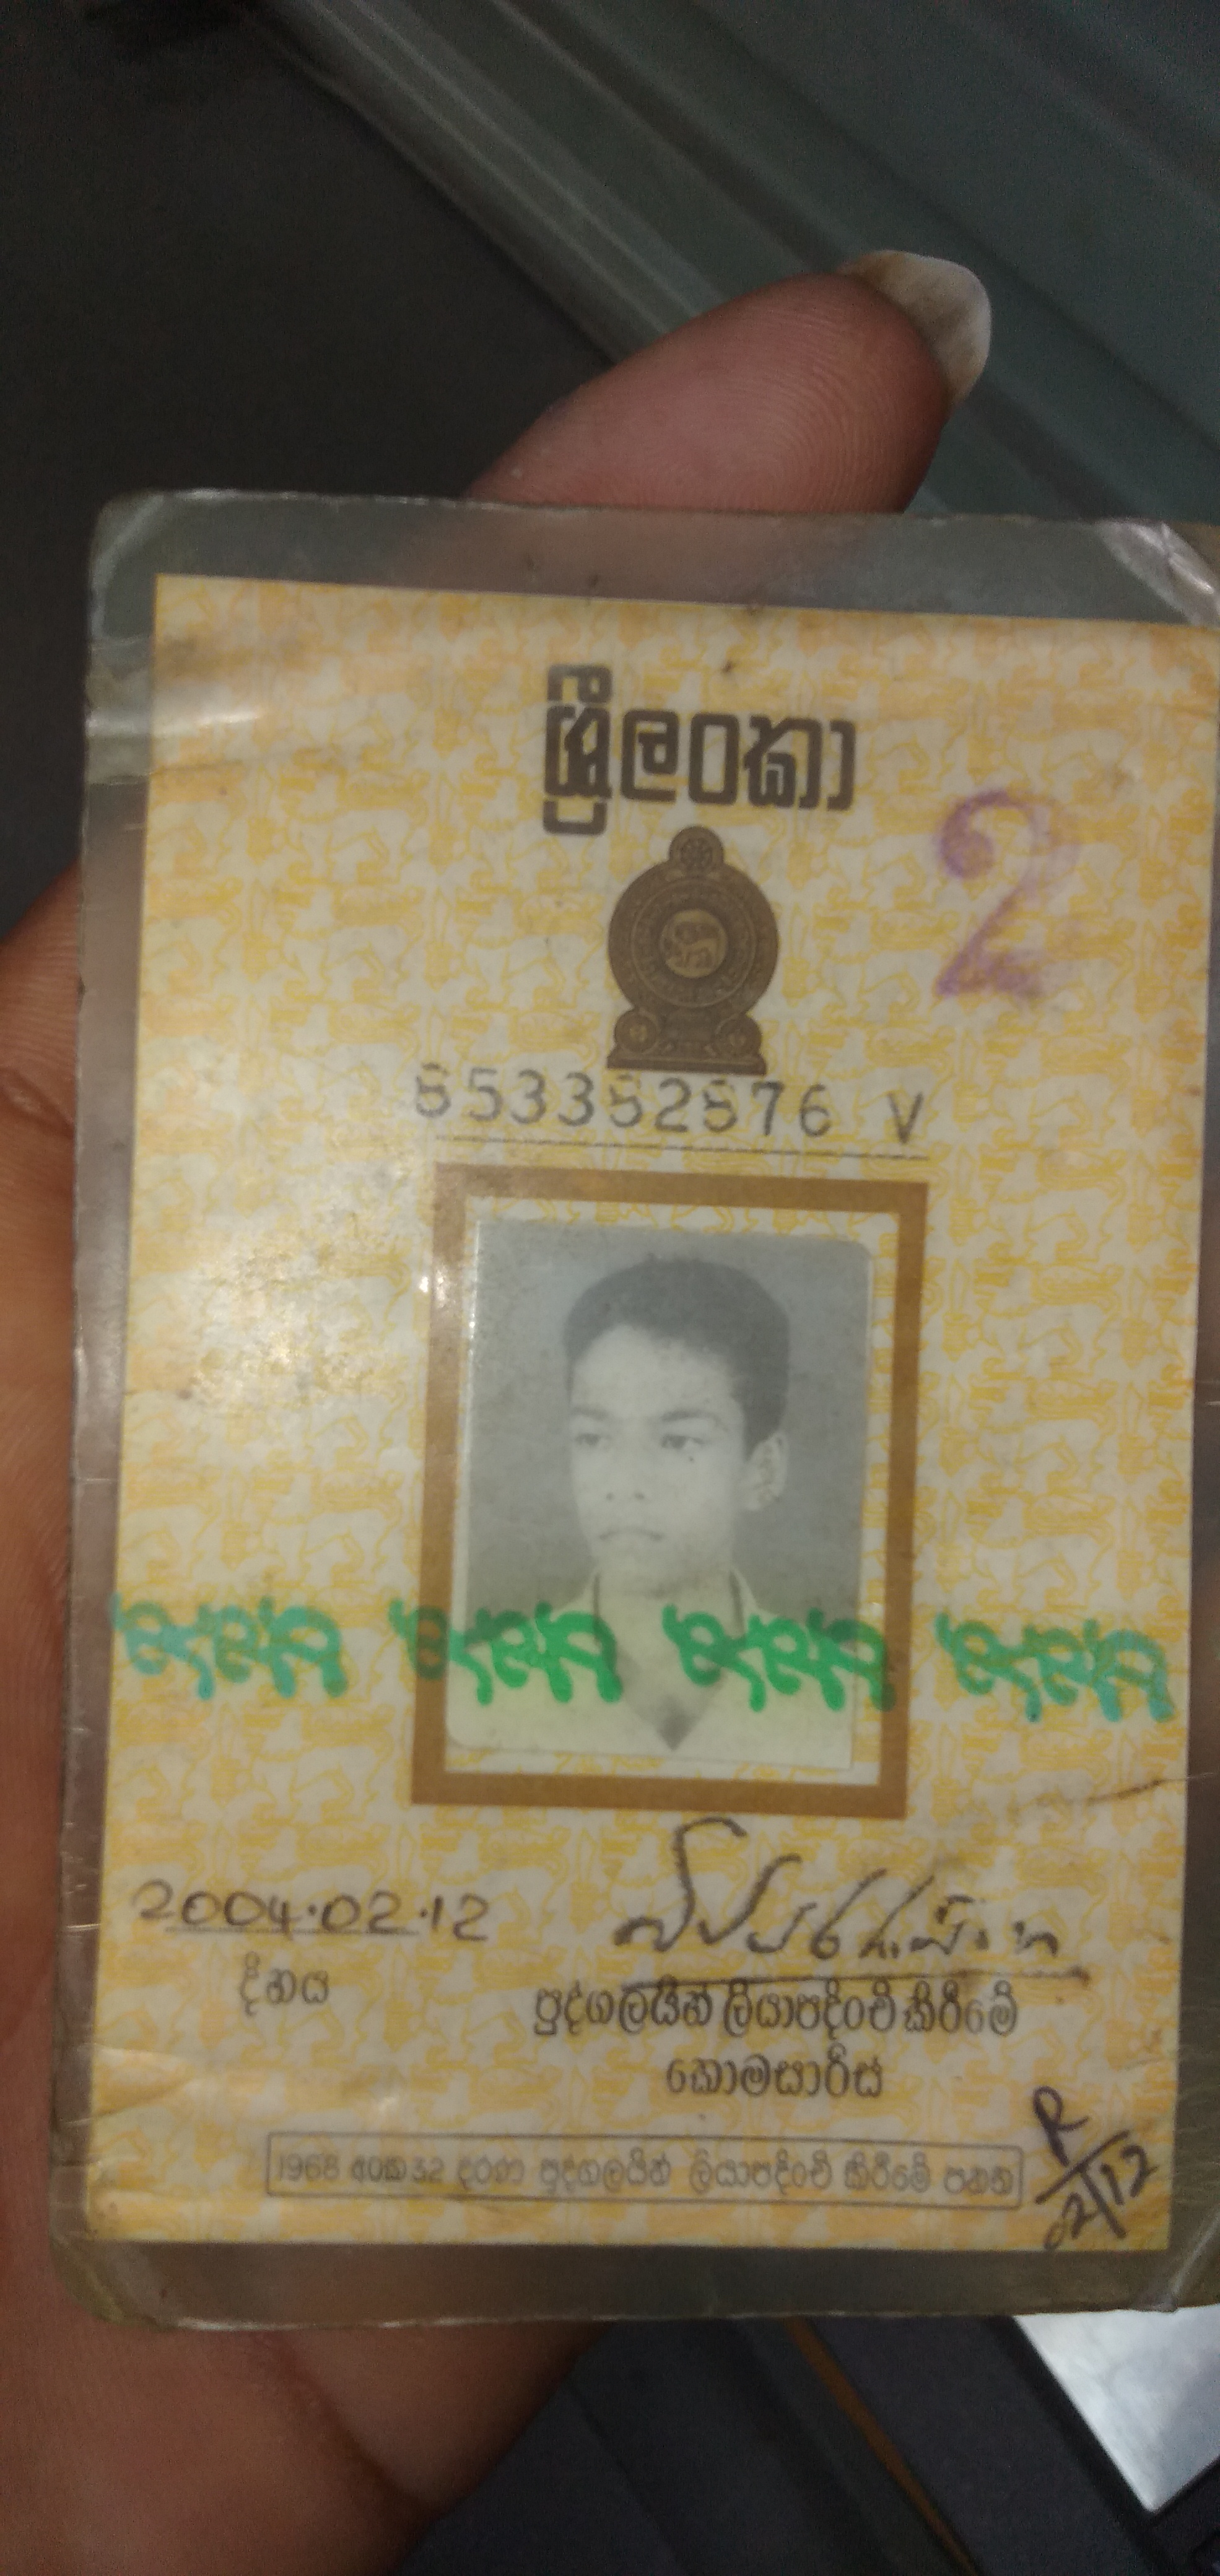 ශ්‍රී ලංකා
2
853382876 V
2004.02.12
දිනය
පුද්ගලයින් ලියාපදිංචි කිරීමේ
කොමසාරිස්
R
02/12
1968 අංක 32 දරණ පුද්ගලයින් ලියාපදිංචි කිරීමේ පනත